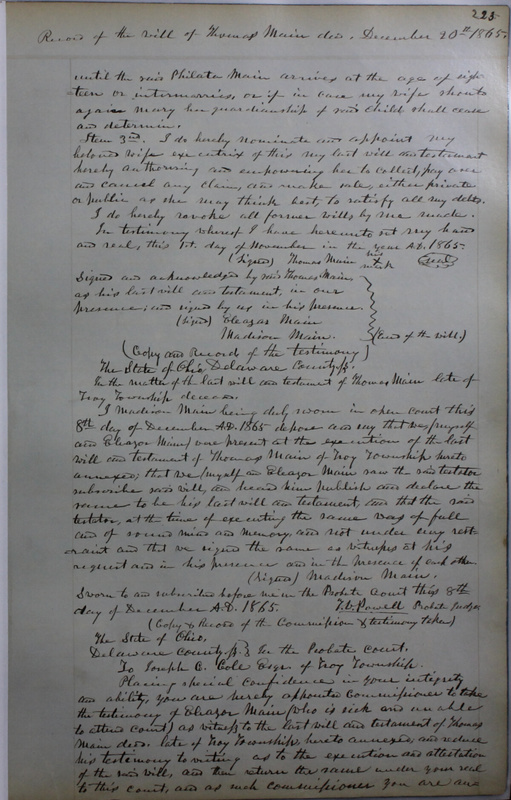 225
Record of the will of Thomas Main decd. December 20th 1865.
until the said Philata Main arrives at the age of eigh-
teen or intermarries, or if in case my wife should
again mary her guardianship of said child shall cease
and determin.
Item 3rd. I do hereby nominate and appoint my
beloved wife executrix of this my last will and testament
hereby authorizing and empowering her to collect, pay over
and cancel any claim, and make sale, either private
or public as she may think best to satisfy all my debts.
I do hereby revoke all former wills by me made.
In testimony whereof I have hereunto set my hand
and seal, this 1st. day of November in the year A.D. 1865.
(Signed) Thomas Main his X mark (Seal)
Signed and acknowledged by said Thomas Main
as his last will and testament, in our
presence, and signed by us in his presence.
(Signed) Eleazar Main
Madison Main. (End of the will.)
(Copy and Record of the testimony)
The State of Ohio Delaware County ss.
In the matter of the last will and testament of Thomas Main late of
Troy Township deceased.
I Madison Main being duly sworn in open court this
8th day of December A.D. 1865 depose and say that we (myself
and Eleazor Main) were present at the execution of the last
will and testament of Thomas Main of Troy Township hereto
annexed; that we (myself and Eleazor Main saw the said testator
subscribe said will, and heard him publish and declare the
same to be his last will and testament, and that the said
testator, at the time of executing the same was of full
and of sound mind and memory, and not under any rest-
raint and that we signed the same as witness at his
request and in his presence and in the presence of each other
(Signed) Madison Main.
Sworn to and subscribed before me in the Probate Court this 8th
day of December A.D. 1865. Powell Probate Judge
(Copy & Record of the Commission & testimony taken)
The State of Ohio,
Delaware County, ss. } In the Probate Court.
To Joseph C. Cole Esqr. of Troy Township.
Placing special confidence in your integrity
and ability, you are hereby appointed Commissioner to take
the testimony of Eleazor Main (who is sick and unable
to attend court) as witness to the last will and testament of Thomas
Main decd. late of Troy Township, hereto annexed, and reduce
his testimony to writing as to the execution and attestation
of the said will, and then return the same under your seal
to this court, and as such commissioner you are au-